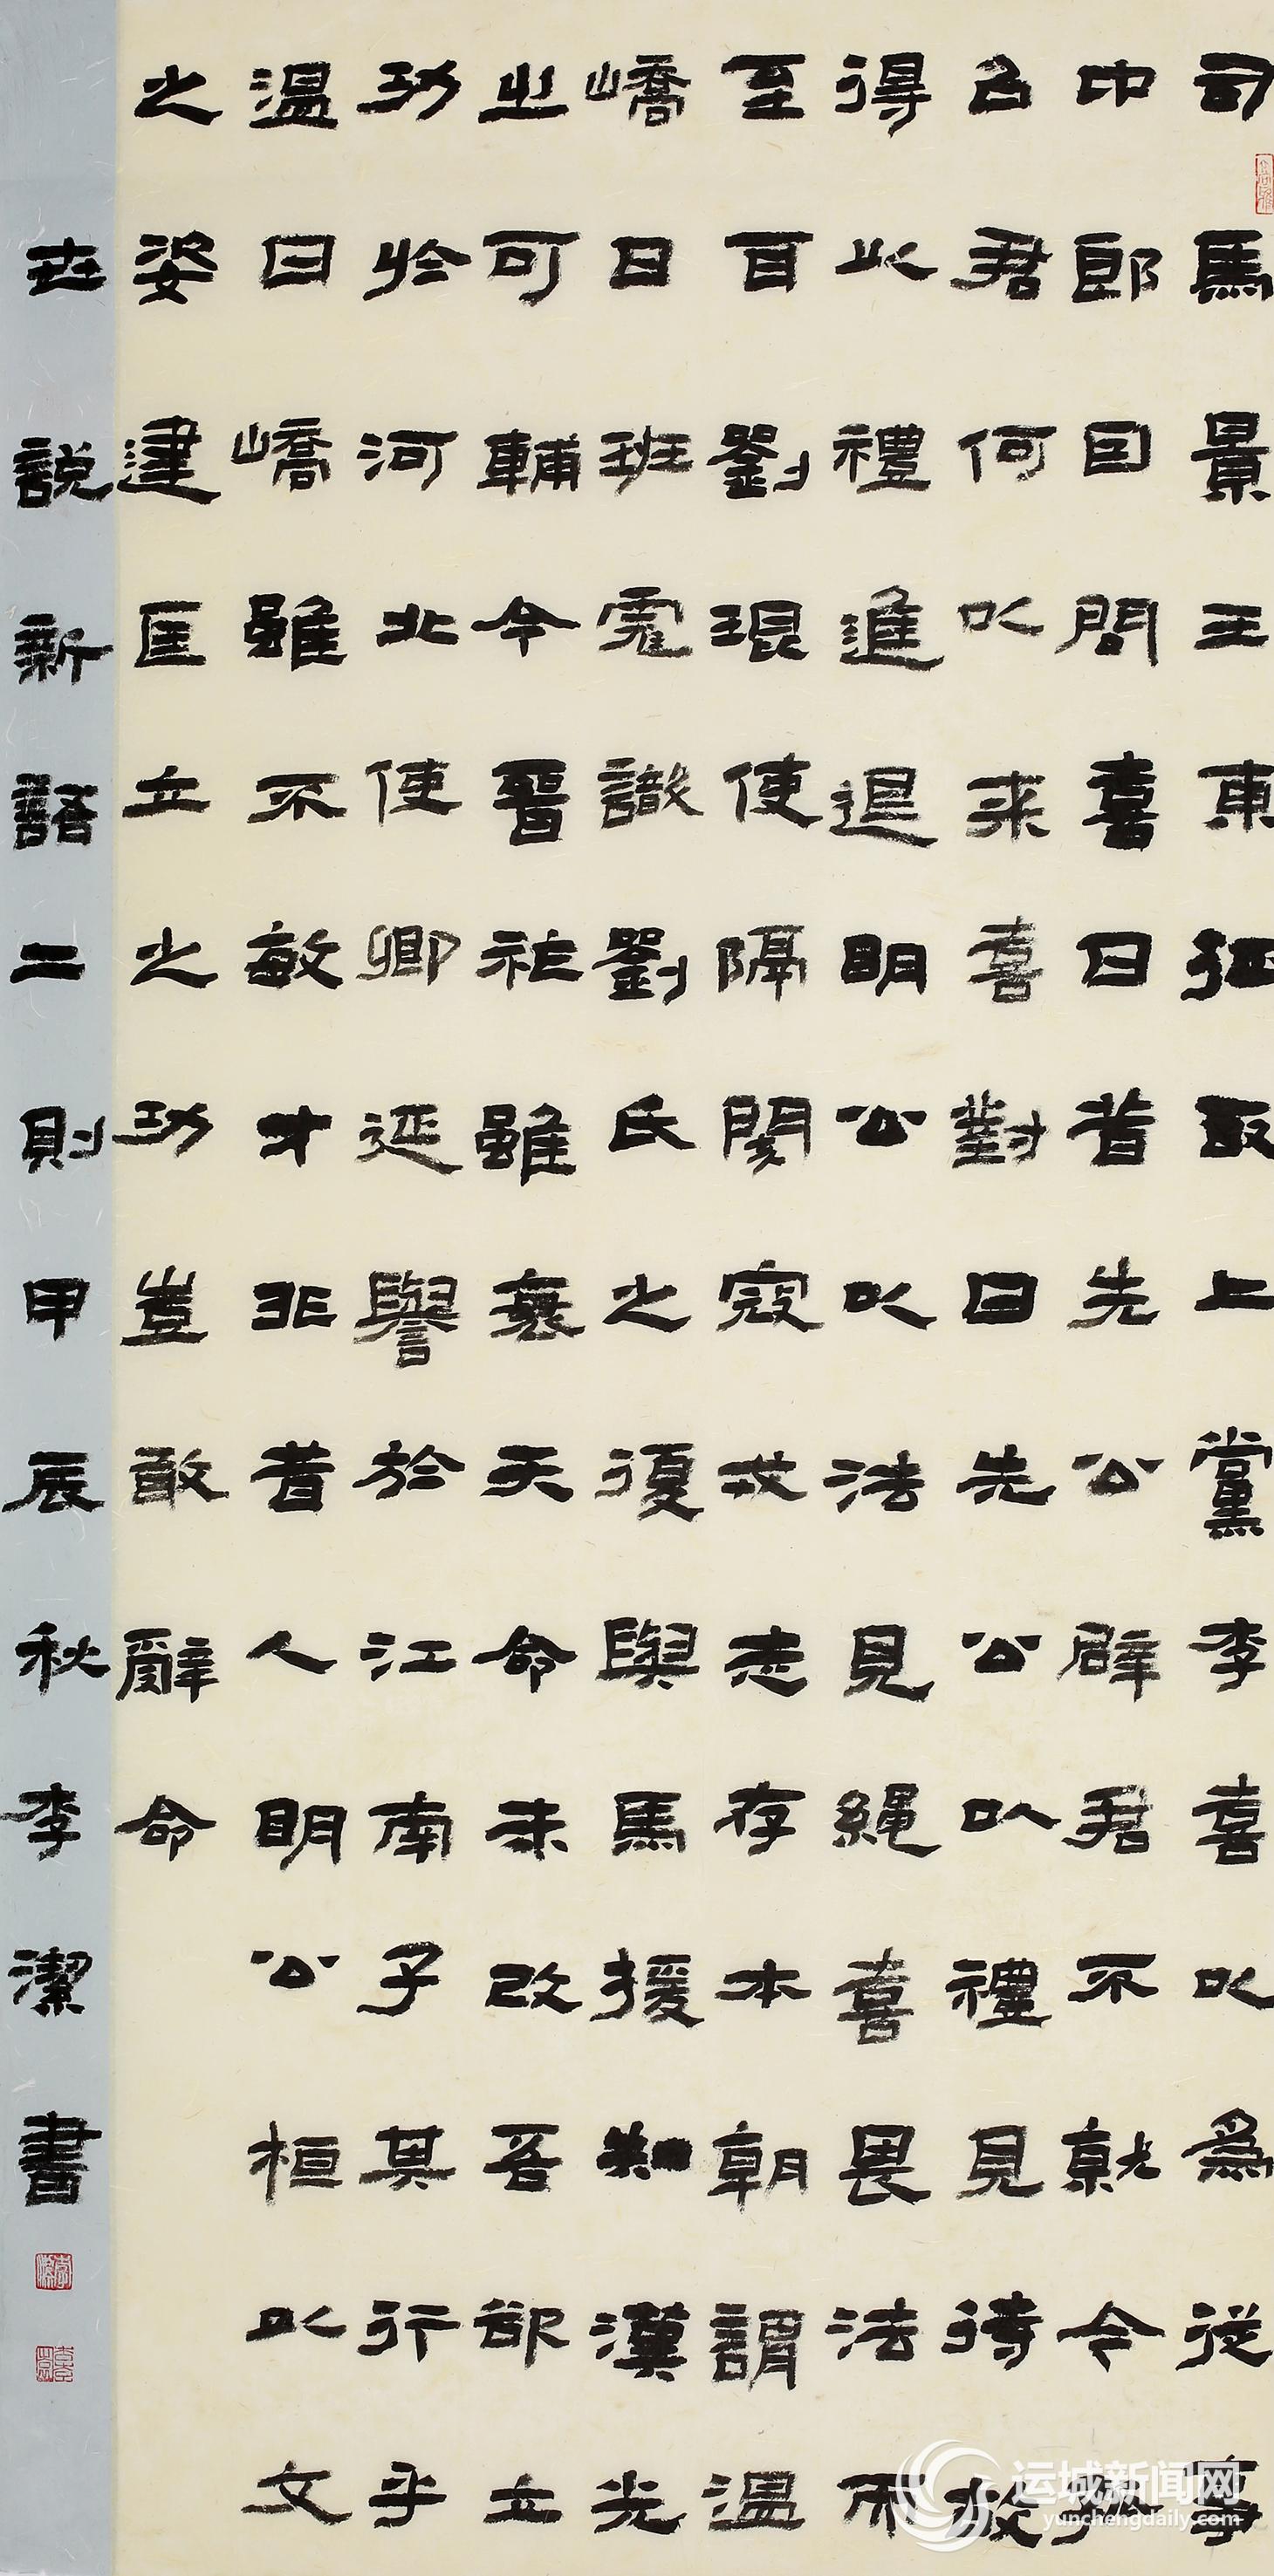 司馬景王東征取上黨李喜以為從事
中郎因問喜曰昔先公辟君不就今孤
召君何以來喜對曰先公以禮見待故
得以禮進退明公以法見繩喜畏法而
至耳劉琨使隔閡寇戎志存本朝謂溫
嶠曰班彪識劉氏之復興馬援知漢光
之可輔今晉祚雖衰天命未改吾欲立
功於河北使卿延譽於江南子其行乎
溫曰嶠雖不敏才非昔人明公以桓文
之姿建匡立之功豈敢辭命
世說新語二則甲辰秋李潔書
李潔
运城新闻网
yunchengdaily.com